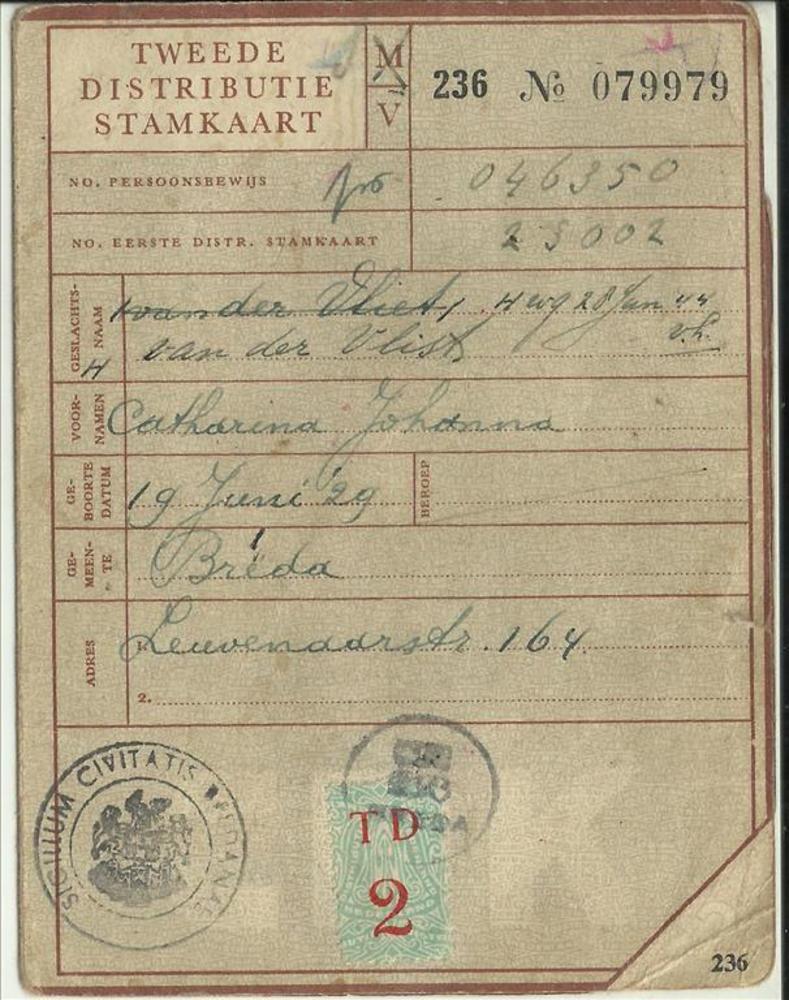 TWEEDE
DISTRIBUTIE
STAMKAART
M
V
236 № 079979
NO. PERSOONSBEWIJS
046350
NO. EERSTE DISTR. STAMKAART
25002
GESLACHTS-
NAAM
H
van der Vliet, H wg 28 Jan 44
van der Vlist v.h.
VOOR-
NAMEN
Catharina Johanna
GE-
BOORTE
DATUM
19 Juni '29
BEROEP
GE-
MEEN-
TE
Breda
ADRES
Leuvenaarstr. 164
2.
SIGILLUM CIVITATIS BREDANAE
BREDA
TD
2
236